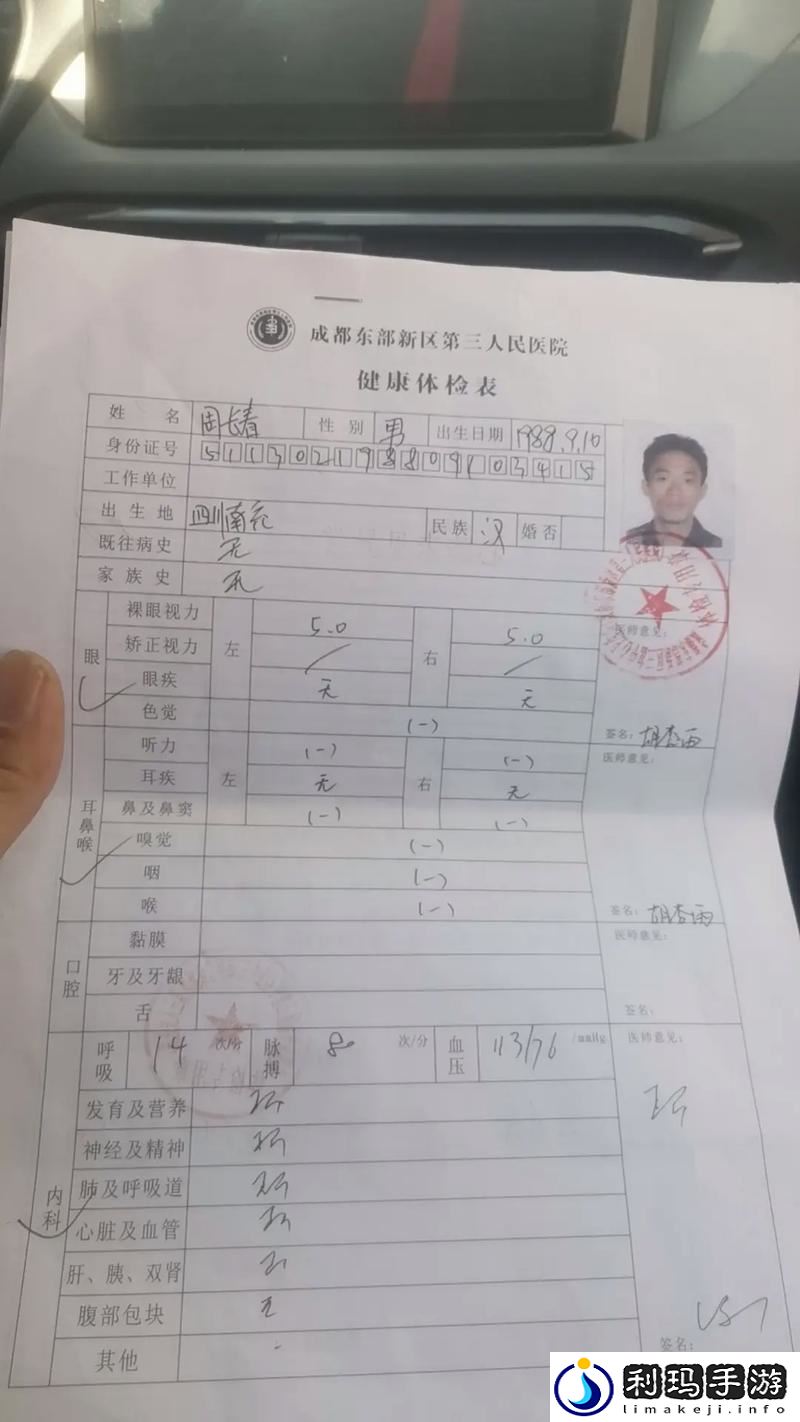 成都东部新区第三人民医院
健康体检表
姓名 周长春 性别 男 出生日期 1988.9.10
身份证号 511302198809103415
工作单位
出生地 四川南充 民族 汉 婚否
既往病史 无
家族史 无
眼
裸眼视力 左 5.0 右 5.0 医师意见:
矫正视力 / /
眼疾 无 无
色觉 (-) 签名: 胡杏雨
耳鼻喉
听力 左 (-) 右 (-) 医师意见:
耳疾 无 无
鼻及鼻窦 (-) (-)
嗅觉 (-)
咽 (-)
喉 (-) 签名: 胡杏雨
口腔
黏膜 医师意见:
牙及牙龈
舌 签名:
内科
呼吸 14 次/分 脉搏 80 次/分 血压 113/76 /mmHg 医师意见:
发育及营养
神经及精神
肺及呼吸道
心脏及血管
肝、胰、双肾
腹部包块 无
其他 -
签名:
利玛手游
limakeji.info